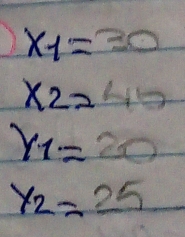 X1=30
X2=45
Y1=20
Y2=25